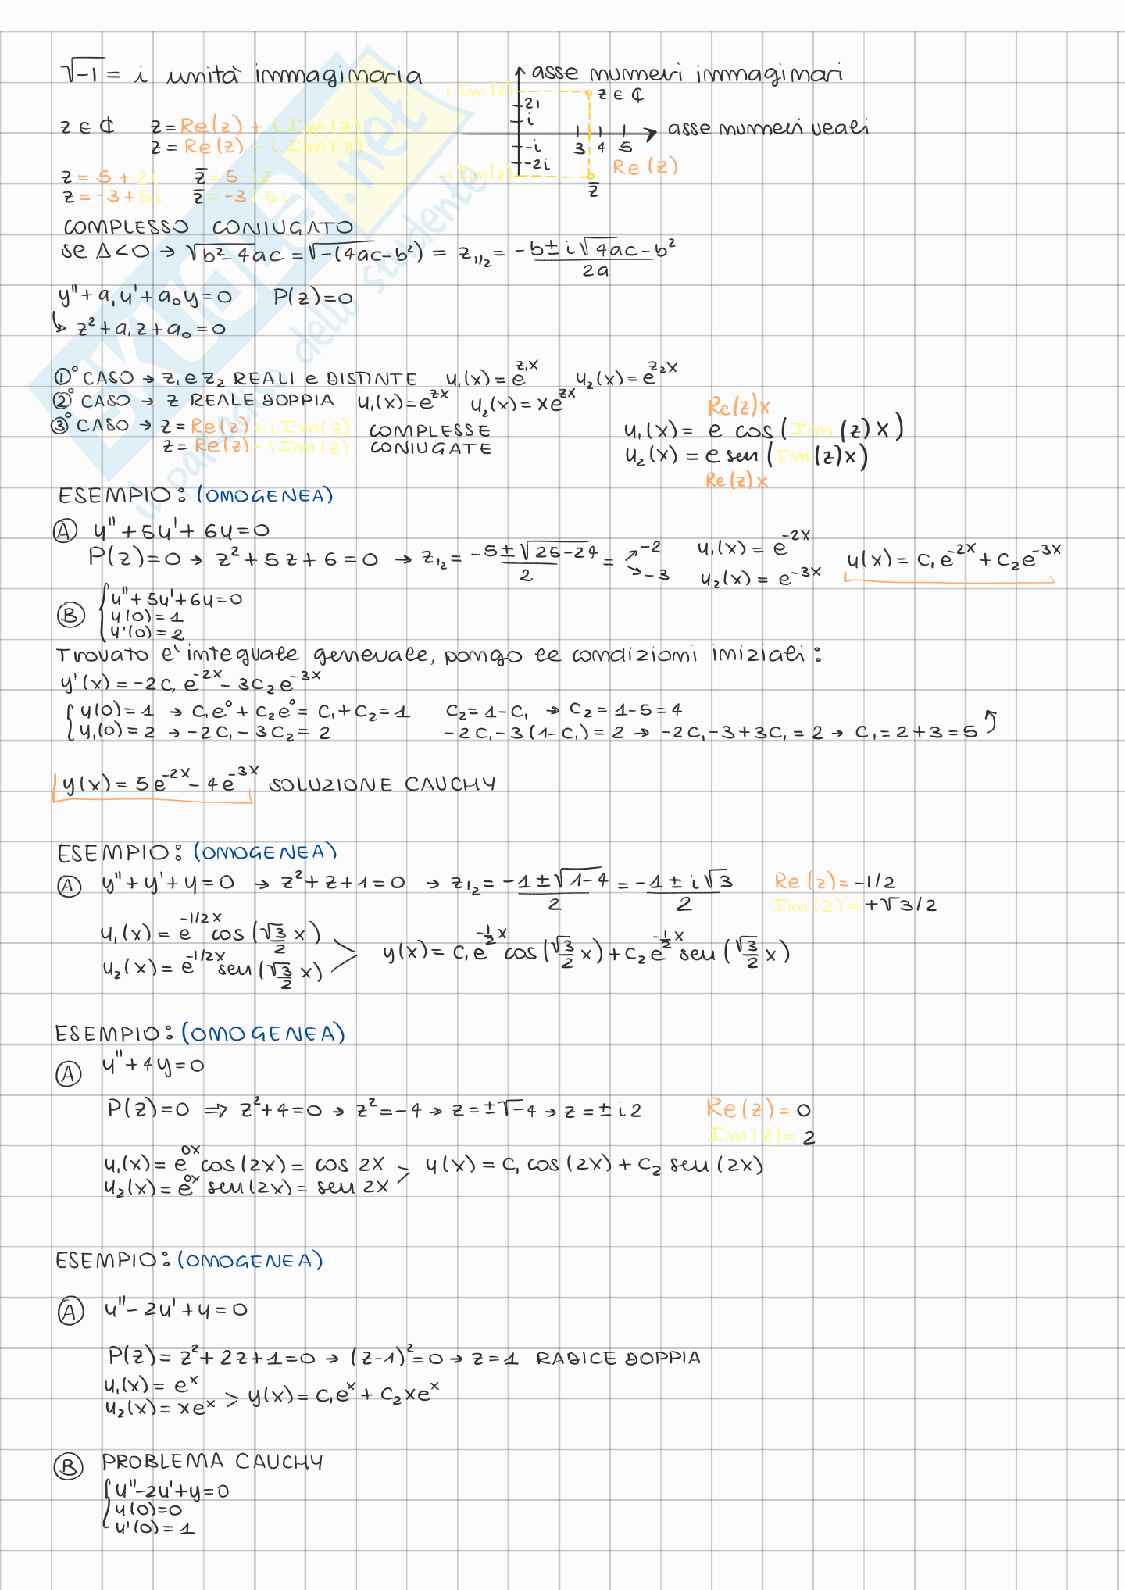 √-1 = i unità immaginaria
asse numeri immaginari
i Im(z)
z ∈ ℂ
2i
i
z ∈ ℂ z = Re(z) + i Im(z)
asse numeri reali
z = Re(z) - i Im(z)
-i 3 4 5
-2i
i Im(z) Re(z)
z̄
z = 5 + 2i z̄ = 5
z = -3 + 5i z̄ = -3
COMPLESSO CONIUGATO
se Δ<0 → √b²-4ac = √-(4ac-b²) = z₁,₂ = -b±i√4ac-b² / 2a
y''+a₁y'+a₀y=0 P(z)=0
↳ z²+a₁z+a₀=0
①° CASO → z₁ e z₂ REALI e DISTINTE y₁(x)=e^z₁x y₂(x)=e^z₂x
②° CASO → z REALE DOPPIA y₁(x)=e^zx y₂(x)=xe^zx
③° CASO → z = Re(z)+i Im(z) COMPLESSE y₁(x)= e^Re(z)x cos(Im(z)x)
z = Re(z)-i Im(z) CONIUGATE y₂(x)= e^Re(z)x sen(Im(z)x)
ESEMPIO: (OMOGENEA)
Ⓐ y''+5y'+6y=0
P(z)=0 → z²+5z+6=0 → z₁,₂ = -5±√25-24 / 2 = ↗-2 ↘-3 y₁(x)=e^-2x y₂(x)=e^-3x y(x)=c₁e^-2x+c₂e^-3x
Ⓑ { y''+5y'+6y=0
y(0)=1
y'(0)=2
Trovato l'integrale generale, pongo le condizioni iniziali:
y'(x)=-2c₁e^-2x-3c₂e^-3x
{ y(0)=1 → c₁e⁰+c₂e⁰=c₁+c₂=1 c₂=1-c₁ → c₂=1-5=4
y₁(0)=2 → -2c₁-3c₂=2 -2c₁-3(1-c₁)=2 → -2c₁-3+3c₁=2 → c₁=2+3=5
y(x)=5e^-2x-4e^-3x SOLUZIONE CAUCHY
ESEMPIO: (OMOGENEA)
Ⓐ y''+y'+y=0 → z²+z+1=0 → z₁,₂ = -1±√1-4 / 2 = -1±i√3 / 2 Re(z)=-1/2
Im(z)=+√3/2
y₁(x)=e^-1/2x cos(√3/2 x)
y₂(x)=e^-1/2x sen(√3/2 x) > y(x)=c₁e^-1/2x cos(√3/2 x)+c₂e^-1/2x sen(√3/2 x)
ESEMPIO: (OMOGENEA)
Ⓐ y''+4y=0
P(z)=0 ⇒ z²+4=0 → z²=-4 → z=±√-4 → z=±i2 Re(z)=0
Im(z)=2
y₁(x)=e^0x cos(2x)=cos 2x
y₂(x)=e^0x sen(2x)=sen 2x > y(x)=c₁cos(2x)+c₂sen(2x)
ESEMPIO: (OMOGENEA)
Ⓐ y''-2y'+y=0
P(z)=z²+2z+1=0 → (z-1)²=0 → z=1 RADICE DOPPIA
y₁(x)=e^x
y₂(x)=xe^x > y(x)=c₁e^x+c₂xe^x
Ⓑ PROBLEMA CAUCHY
{ y''-2y'+y=0
y(0)=0
y'(0)=1